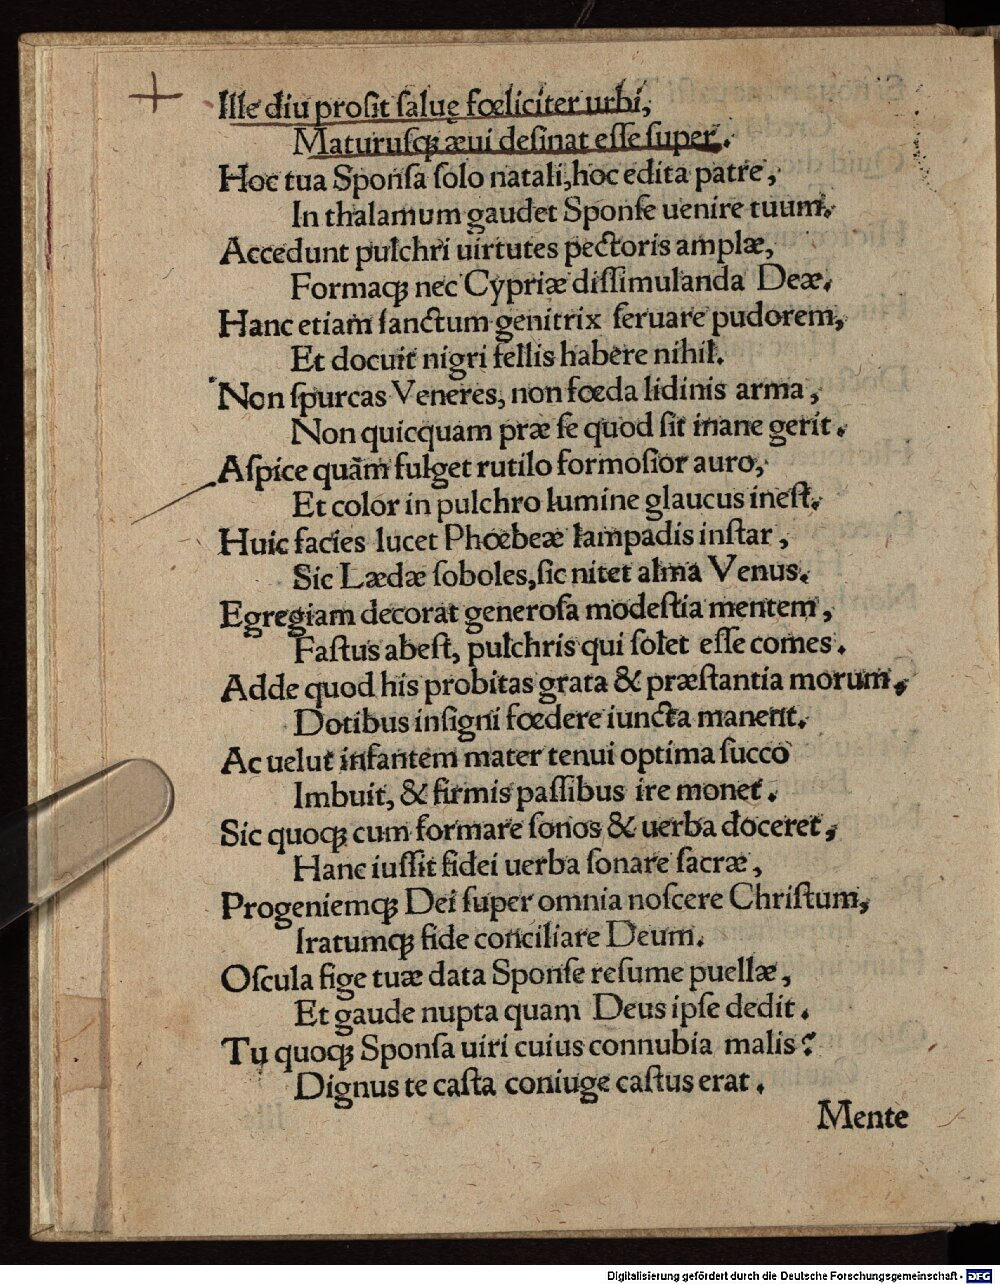 Ille diu proſit ſaluę fœliciter urbi,
Maturuſqꝫ æui deſinat eſſe ſuper.
Hoc tua Sponſa ſolo natali, hoc edita patre,
In thalamum gaudet Sponſe uenire tuum.
Accedunt pulchri uirtutes pectoris amplæ,
Formaqꝫ nec Cypriæ diſſimulanda Deæ.
Hanc etiam ſanctum genitrix ſeruare pudorem,
Et docuit nigri fellis habere nihil.
Non ſpurcas Veneres, non fœda lidinis arma,
Non quicquam præ ſe quod ſit inane gerit.
Aſpice quãm fulget rutilo formoſior auro,
Et color in pulchro lumine glaucus ineſt.
Huic facies lucet Phœbeæ lampadis inſtar,
Sic Lædæ ſoboles, ſic nitet alma Venus.
Egregiam decorat generoſa modeſtia mentem,
Faſtus abeſt, pulchris qui ſolet eſſe comes.
Adde quod his probitas grata & præſtantia morum,
Dotibus inſigni fœdere iuncta manent.
Ac uelut infantem mater tenui optima ſucco
Imbuit, & firmis paſſibus ire monet.
Sic quoqꝫ cum formare ſonos & uerba doceret,
Hanc iuſſit fidei uerba ſonare ſacræ,
Progeniemqꝫ Dei ſuper omnia noſcere Chriſtum,
Iratumqꝫ fide conciliare Deum.
Oſcula fige tuæ data Sponſe reſume puellæ,
Et gaude nupta quam Deus ipſe dedit.
Tu quoqꝫ Sponſa uiri cuius connubia malis?
Dignus te caſta coniuge caſtus erat.
Mente
Digitalisierung gefördert durch die Deutsche Forschungsgemeinschaft - DFG